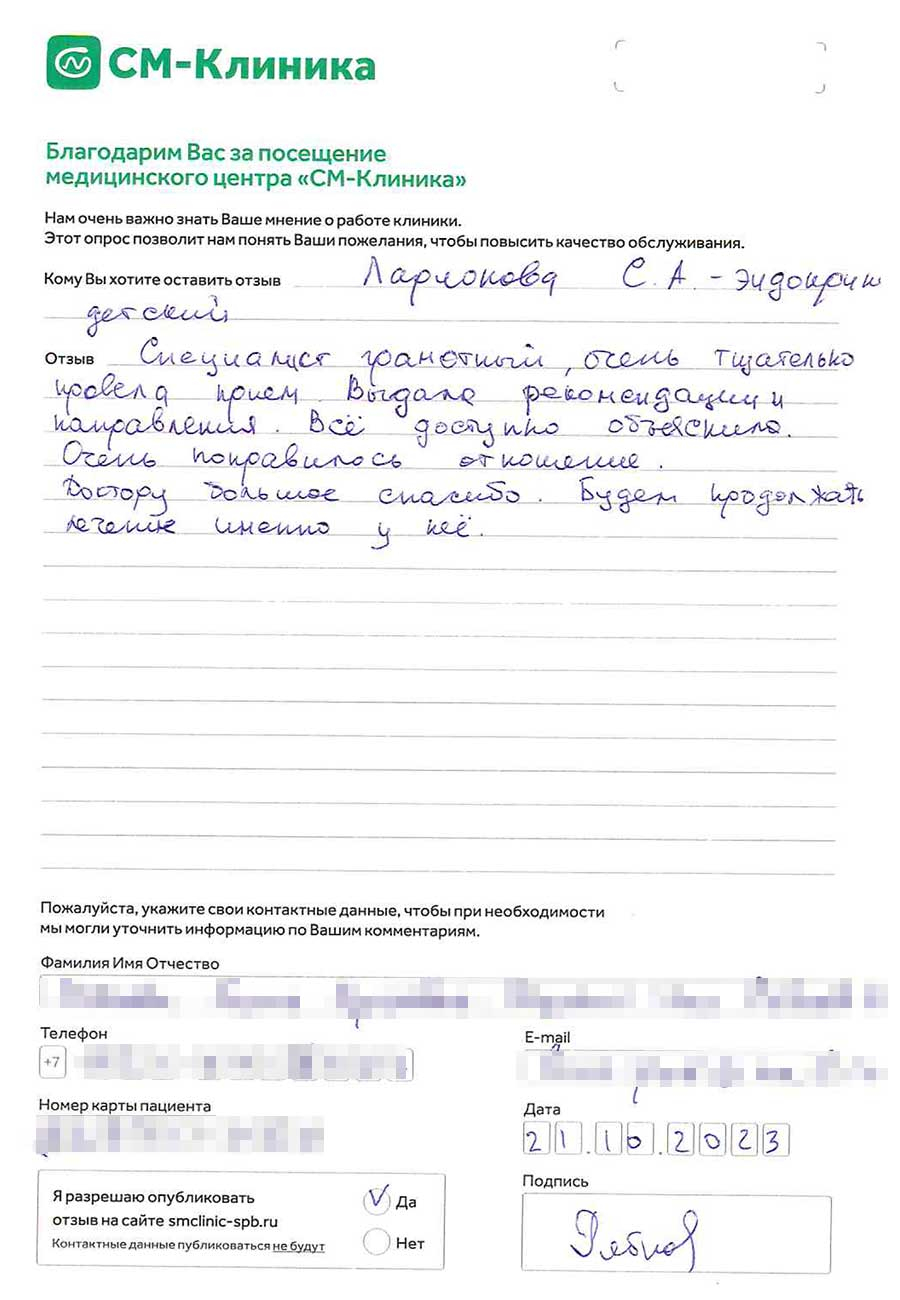 СМ-Клиника
Благодарим Вас за посещение
медицинского центра «СМ-Клиника»
Нам очень важно знать Ваше мнение о работе клиники.
Этот опрос позволит нам понять Ваши пожелания, чтобы повысить качество обслуживания.
Кому Вы хотите оставить отзыв Ларионова С. А. - эндокрин
детский
Отзыв Специалист грамотный, очень тщательно
провела прием. Выдала рекомендации и
направления. Всё доступно объяснила.
Очень понравилось отношение.
Доктору большое спасибо. Будем продолжать
лечение именно у неё.
Пожалуйста, укажите свои контактные данные, чтобы при необходимости
мы могли уточнить информацию по Вашим комментариям.
Фамилия Имя Отчество
Телефон E-mail
+7
Номер карты пациента Дата
21.10.2023
Я разрешаю опубликовать Да Подпись
отзыв на сайте smclinic-spb.ru
Контактные данные публиковаться не будут Нет